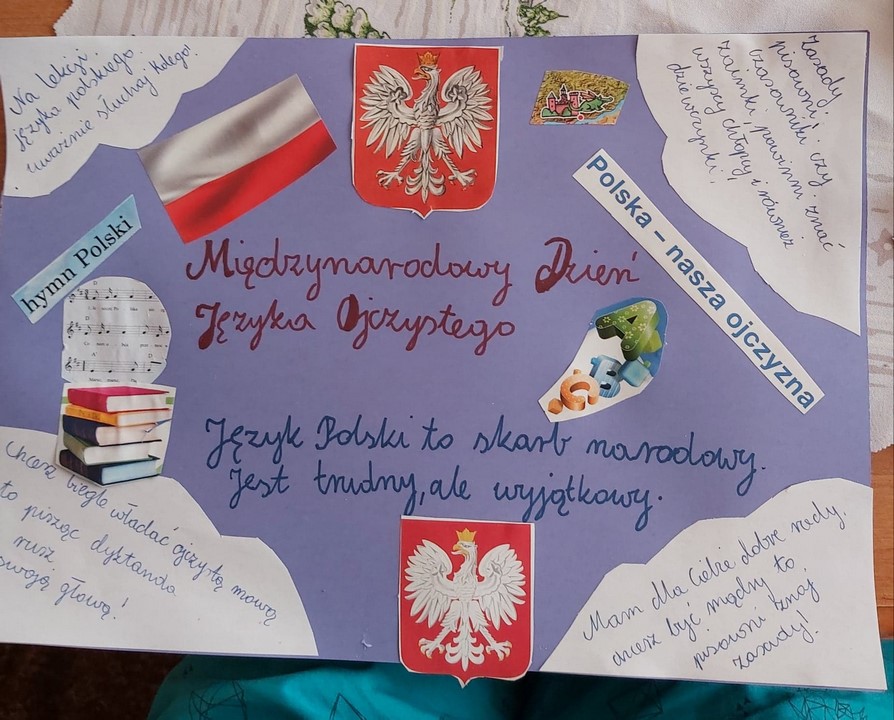 Na lekcji
języka polskiego
uważnie słuchaj kolego!
Zasady
pisowni:
czasowniki czy
zaimki powinni znać
wszyscy chłopcy i również
dziewczynki!
hymn Polski
Polska – nasza ojczyzna
Międzynarodowy Dzień
Języka Ojczystego
A
B
C
Język Polski to skarb narodowy.
Jest trudny, ale wyjątkowy.
Chcesz biegle władać ojczystą mową
to pisząc dyktanda
rusz
swoją głową!
Mam dla Ciebie dobre rady,
chcesz być mądry to
pisowni znaj
zasady!